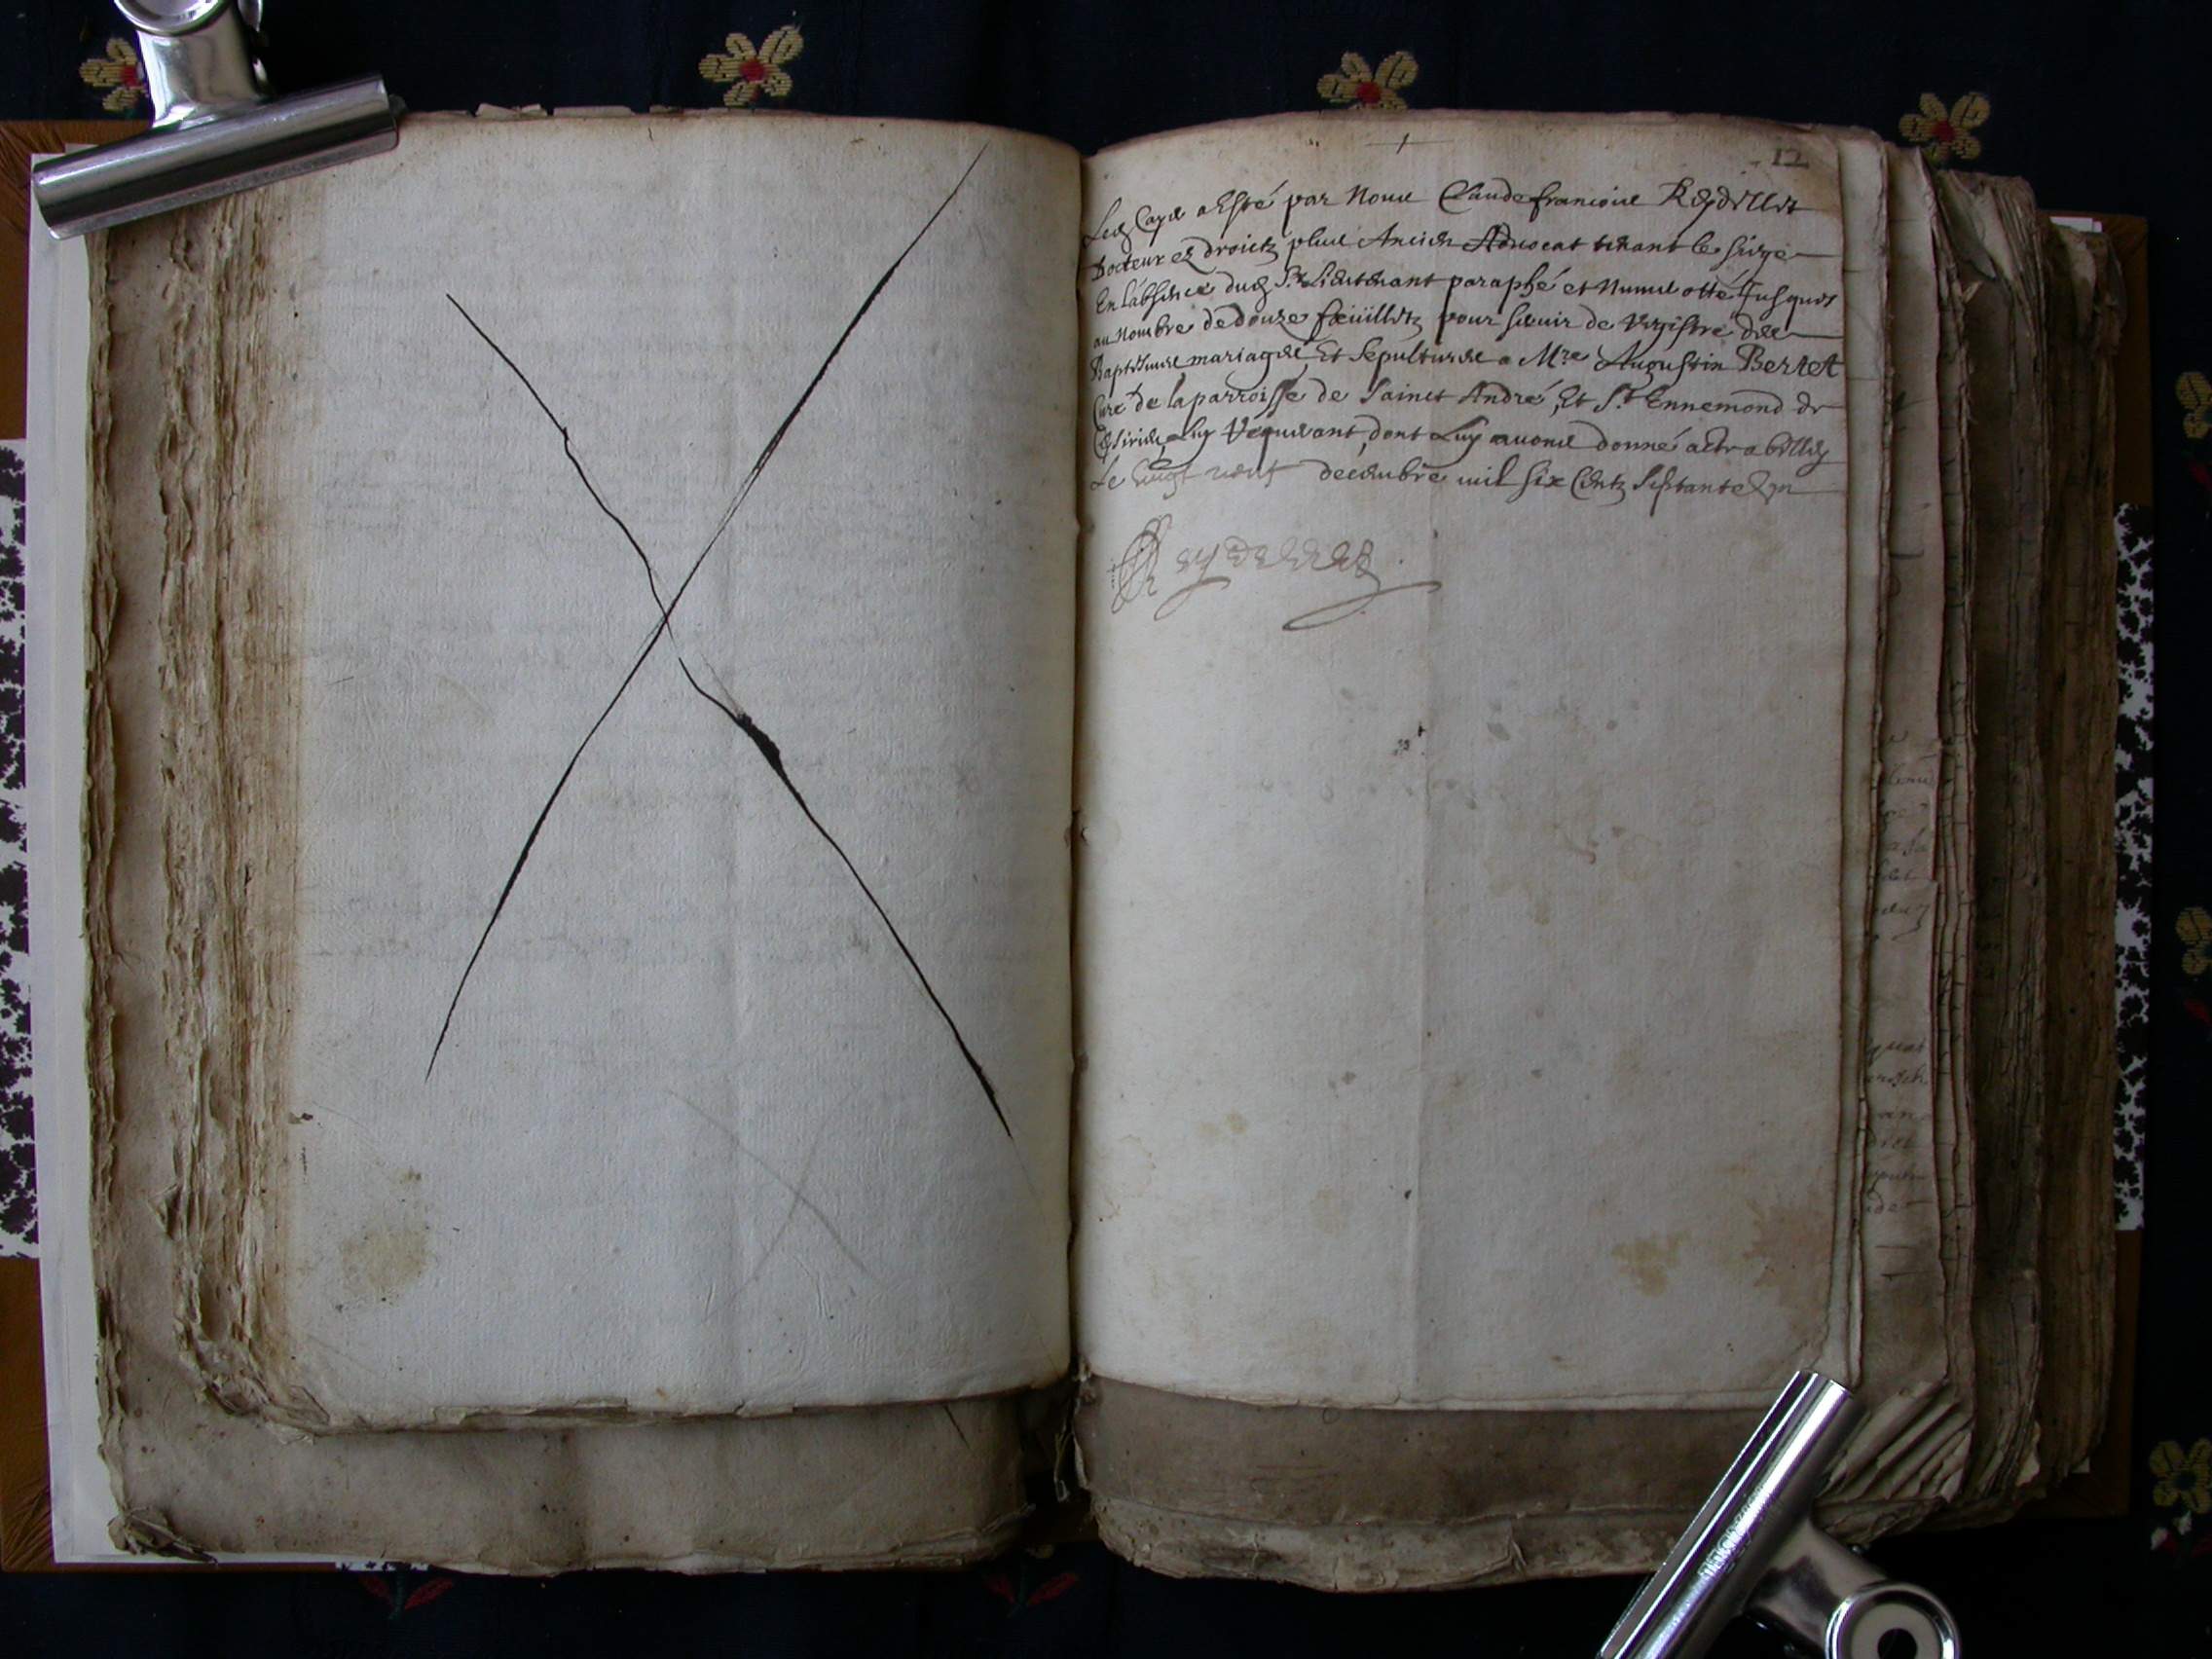 12
Led Caye a Esté par Nous Claude francois Reydellet
Docteur ez droictz plus Ancien Advocat tenant le siege
En l'absence dud Sr Lieutenant paraphé et Numerotté Jusques
au nombre de douze feüilletz pour servir de registre des
Baptesmes mariages Et Sepultures a Mre Augustin Bertet
Curé de la parroisse de Sainct André, Et St Ennemond de
Luy Requerant, dont Luy avons donné acte a belley
Le vingt neuf decembre mil six Centz septante Un
Reydellet